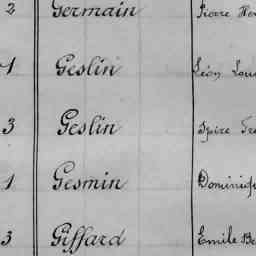 2 Germain Pierre
1 Geslin Léon
3 Geslin Spire
1 Gesmin
3 Giffard Emile